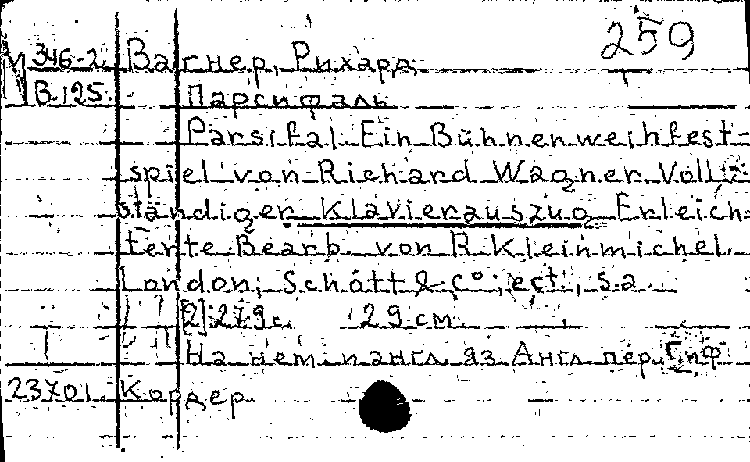 259
М 346-2 Вагнер, Рихард
В 125 Парсифаль
Parsifal Ein Bühnenweihfest-
spiel von Richard Wagner. Voll-
ständiger Klavierauszug Erleich-
terte Bearb. von R. Kleinmichel.
London; Schott & C°; ect, s.a.
[2], 279 с. 29 см.
На нем. и англ. яз. Англ. пер.
23701 Кордер